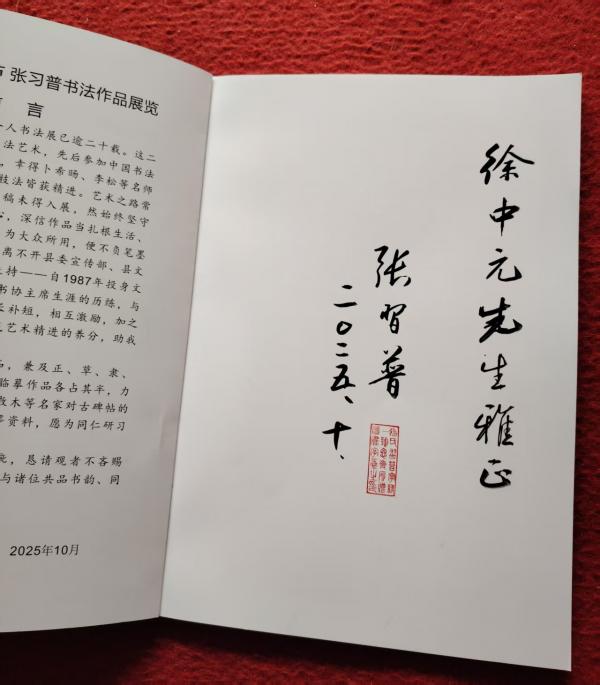 张习普书法作品展览
言
人书法展已逾二十载。这二
法艺术，先后参加中国书法
，幸得卜希旸、李松等名师
技法皆获精进。艺术之路常
稿未得入展，然始终坚守
，深信作品当扎根生活、
为大众所用，便不负笔墨
离不开县委宣传部、县文
持——自1987年投身文
书协主席生涯的历练，与
长补短，相互激励，加之
艺术精进的养分，助我
，兼及正、草、隶、
临摹作品各占其半，力
敦木等名家对古碑帖的
资料，愿为同仁研习
，恳请观者不吝赐
与诸位共品书韵、同
2025年10月
徐中元先生雅正
张习普
二〇二五、十、